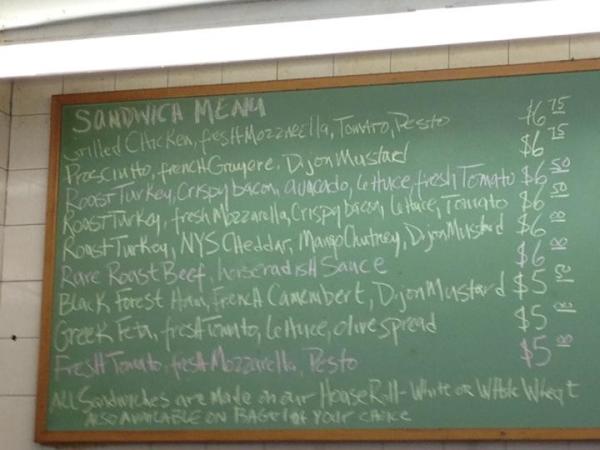 SANDWICH MENU
Grilled Chicken, fresh Mozzarella, Tomato, Pesto $6 75
Prosciutto, french Gruyere, Dijon Mustard $6 75
Roast Turkey, Crispy bacon, avocado, lettuce, fresh Tomato $6 50
Roast Turkey, fresh Mozzarella, Crispy bacon, lettuce, Tomato $6 50
Roast Turkey, NYS Cheddar, Mango Chutney, Dijon Mustard $6
Rare Roast Beef, horseradish Sauce $6
Black Forest Ham, french Camembert, Dijon Mustard $5
Greek Feta, fresh Tomato, Lettuce, olive spread $5
Fresh Tomato, fresh Mozzarella, Pesto $5
ALL Sandwiches are Made on our House Roll - White or Whole Wheat
ALSO AVAILABLE ON BAGel of YOUR CHOICE